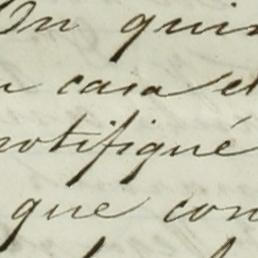 On quin
casa el
notifiqué
que con